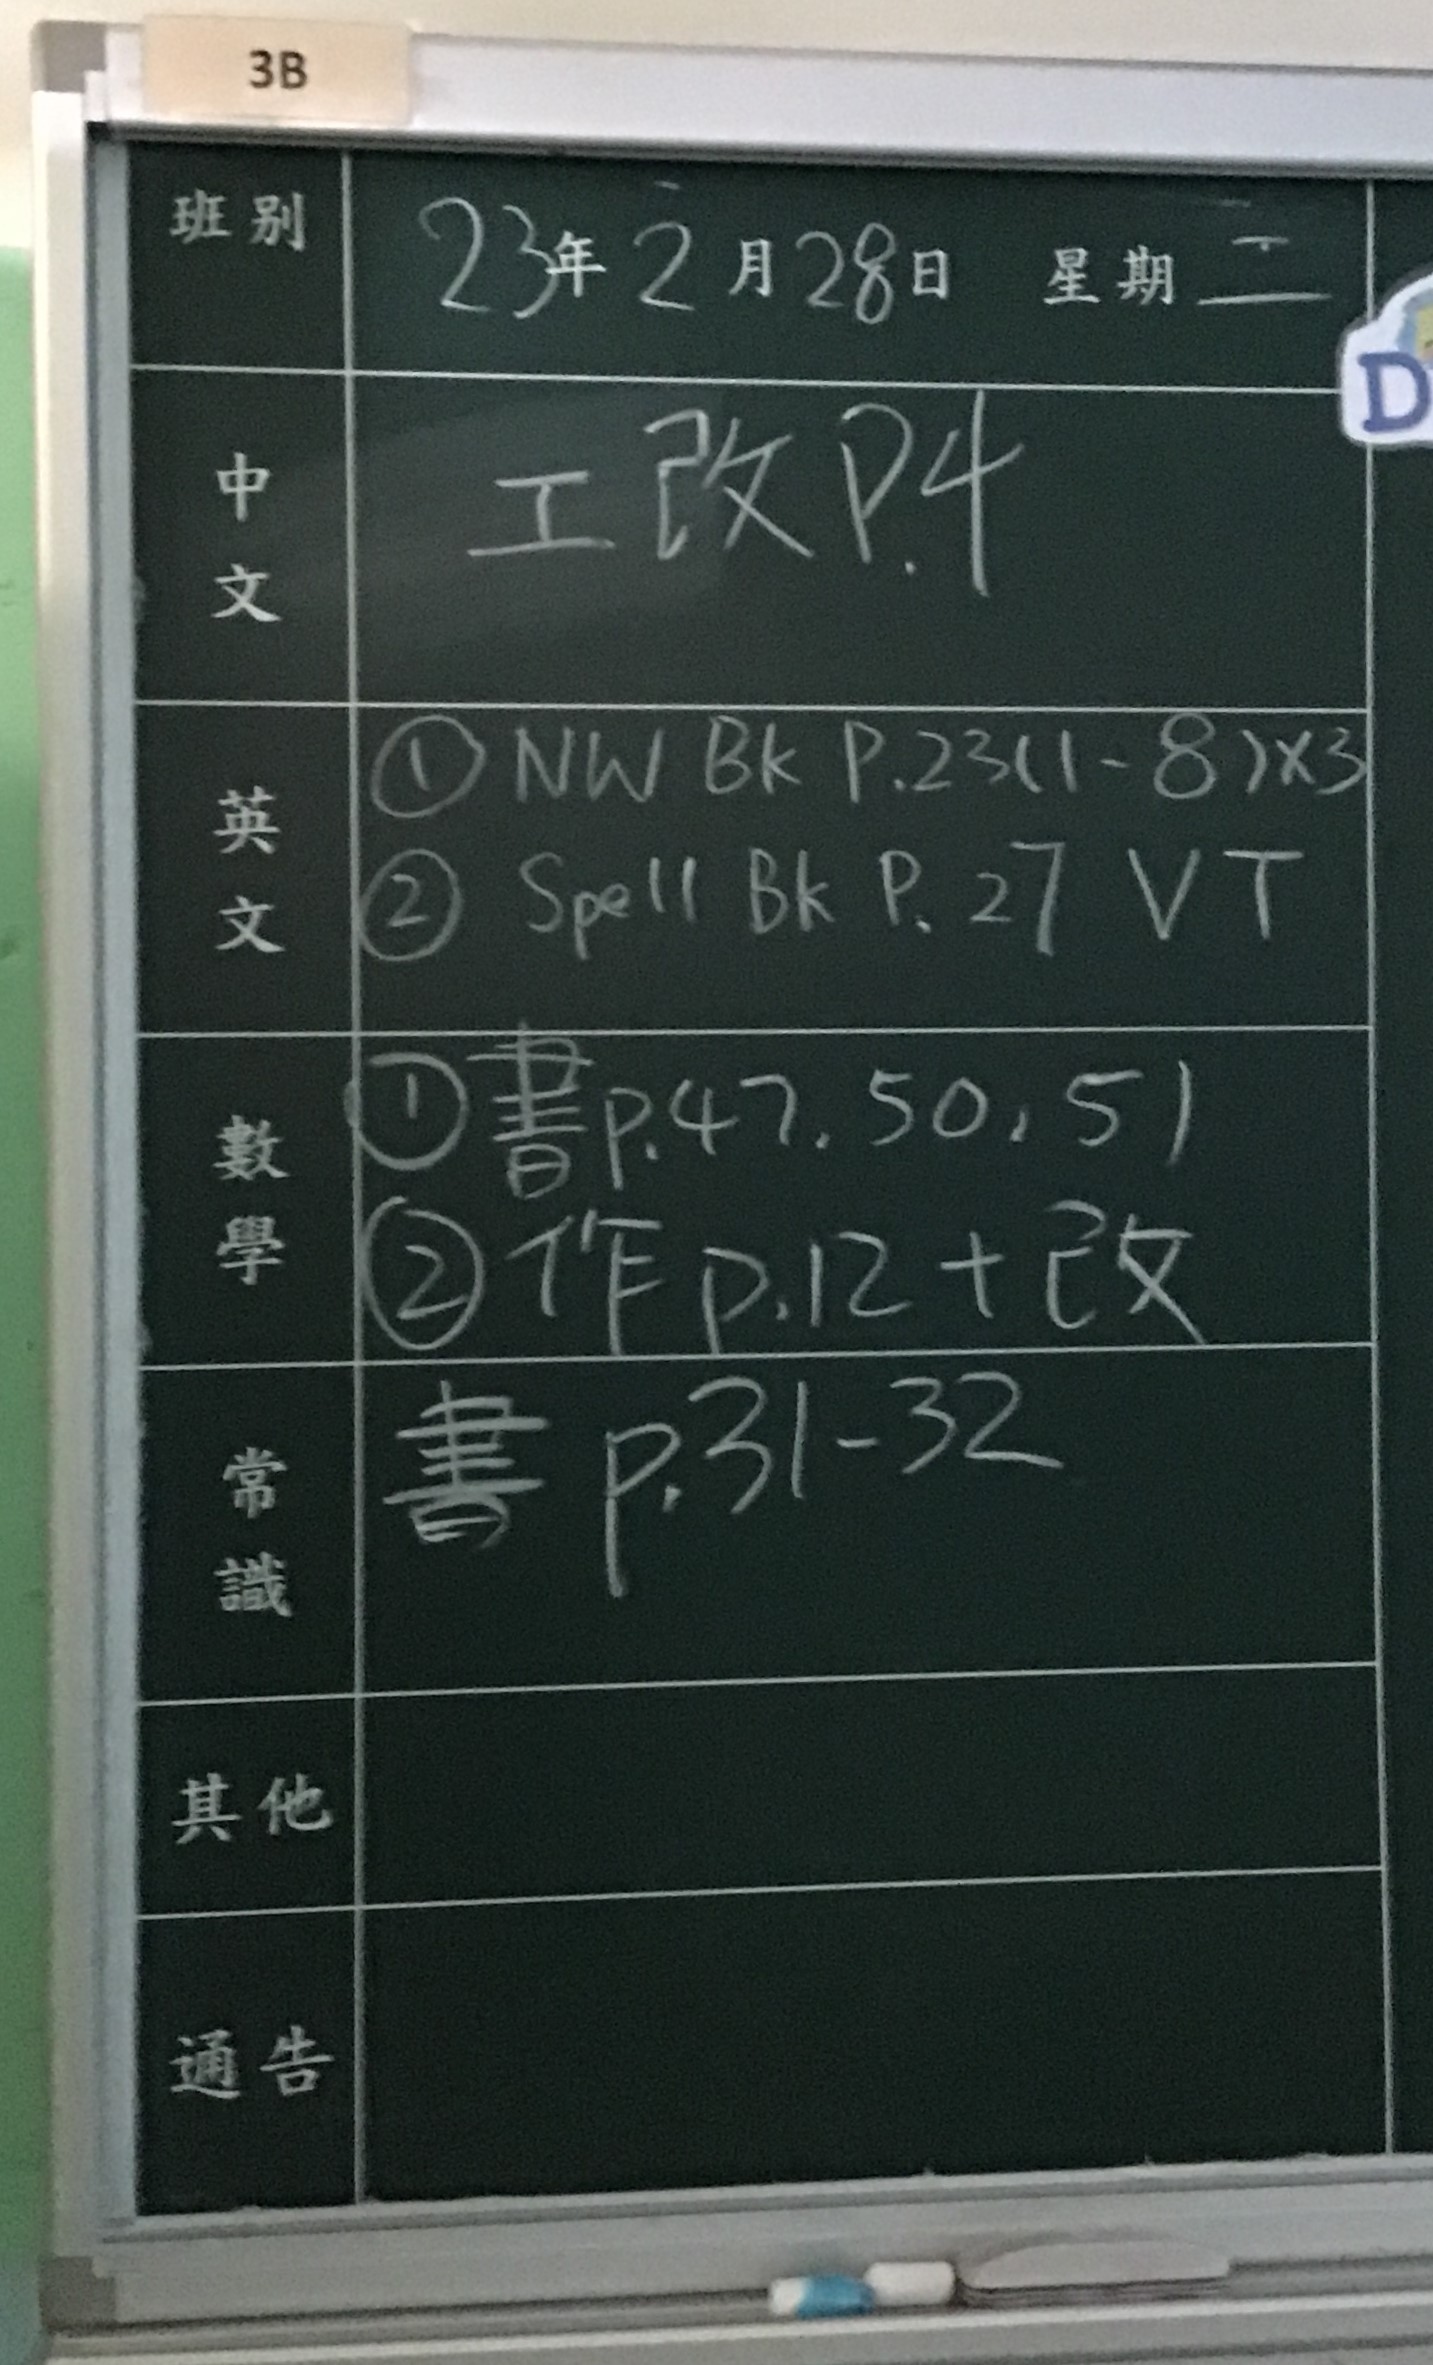 3B
班别 23年2月28日 星期二
中文 工改 P.4
英文 ① NW BK P.23(1-8)x3
② Spell BK P.27 VT
數學 ①書p.47, 50, 51
②作p.12+改
常識 書 p.31-32
其他
通告
D